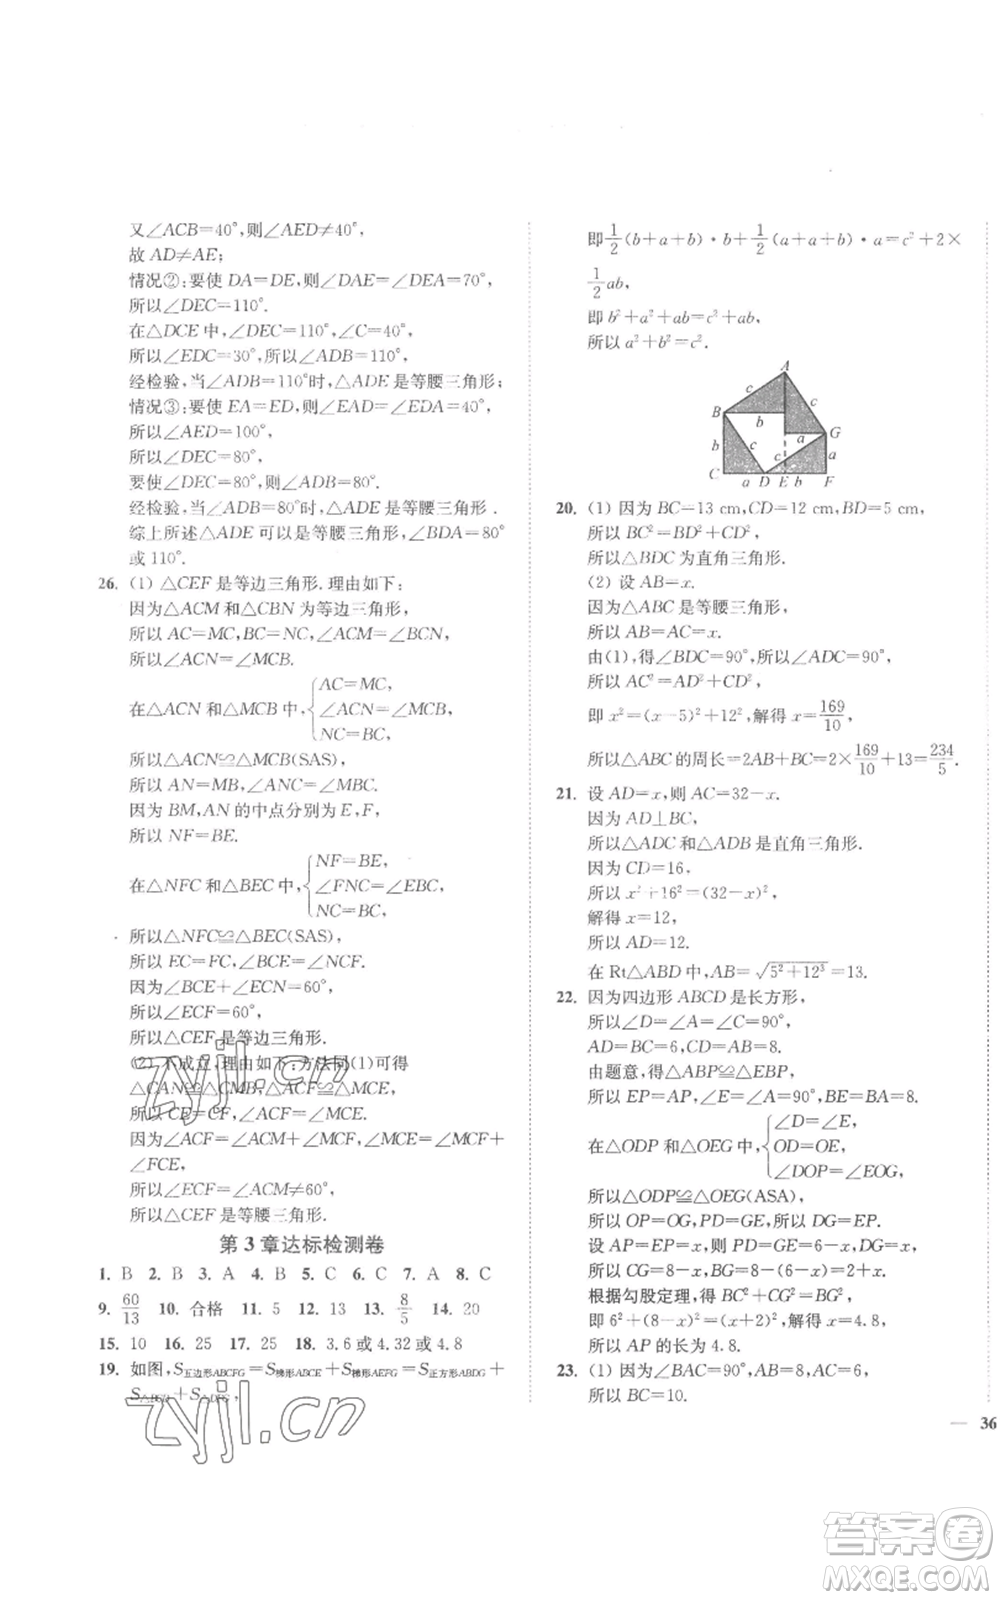 又∠ACB=40°,则∠AED≠40°,
故 AD≠AE;
情况②:要使 DA=DE,则∠DAE=∠DEA=70°,
所以∠DEC=110°.
在△DCE 中,∠DEC=110°,∠C=40°,
所以∠EDC=30°,所以∠ADB=110°,
经检验,当∠ADB=110°时,△ADE 是等腰三角形;
情况③:要使 EA=ED,则∠EAD=∠EDA=40°,
所以∠AED=100°,
所以∠DEC=80°.
要使∠DEC=80°,则∠ADB=80°.
经检验,当∠ADB=80°时,△ADE 是等腰三角形.
综上所述△ADE 可以是等腰三角形,∠BDA=80°
或110°.
26. (1) △CEF 是等边三角形. 理由如下:
因为△ACM 和△CBN 为等边三角形,
所以 AC=MC,BC=NC,∠ACM=∠BCN,
所以∠ACN=∠MCB.
在△ACN 和△MCB 中,{AC=MC,
∠ACN=∠MCB,
NC=BC,
所以△ACN≌△MCB(SAS),
所以 AN=MB,∠ANC=∠MBC.
因为 BM,AN 的中点分别为 E,F,
所以 NF=BE.
在△NFC 和△BEC 中,{NF=BE,
∠FNC=∠EBC,
NC=BC,
所以△NFC≌△BEC(SAS),
所以 EC=FC,∠BCE=∠NCF.
因为∠BCE+∠ECN=60°,
所以∠ECF=60°,
所以△CEF 是等边三角形.
(2) 不成立,理由如下:方法同(1)可得
△CAN≌△CMB,△ACF≌△MCE,
所以 CE=CF,∠ACF=∠MCE.
因为∠ACF=∠ACM+∠MCF,∠MCE=∠MCF+
∠FCE,
所以∠ECF=∠ACM≠60°,
所以△CEF 是等腰三角形.
第 3 章达标检测卷
1. B 2. B 3. A 4. B 5. C 6. C 7. A 8. C
9. 60/13 10. 合格 11. 5 12. 13 13. 8/5 14. 20
15. 10 16. 25 17. 25 18. 3.6 或 4.32 或 4.8
19. 如图,S五边形ABCFG=S梯形ABCE+S梯形AEFG=S正方形ABDG+
S△BCD+S△DFG,
即 1/2(b+a+b)·b+1/2(a+a+b)·a=c²+2×
1/2ab,
即 b²+a²+ab=c²+ab,
所以 a²+b²=c².
A
c
c
B
b
a
G
b
c
c
a
C
a
D
E
b
F
20. (1) 因为 BC=13 cm,CD=12 cm,BD=5 cm,
所以 BC²=BD²+CD²,
所以△BDC 为直角三角形.
(2) 设 AB=x.
因为△ABC 是等腰三角形,
所以 AB=AC=x.
由(1),得∠BDC=90°,所以∠ADC=90°,
所以 AC²=AD²+CD²,
即 x²=(x-5)²+12²,解得 x=169/10,
所以△ABC 的周长=2AB+BC=2×169/10+13=234/5.
21. 设 AD=x,则 AC=32-x.
因为 AD⊥BC,
所以△ADC 和△ADB 是直角三角形.
因为 CD=16,
所以 x²+16²=(32-x)²,
解得 x=12,
所以 AD=12.
在 Rt△ABD 中,AB=√5²+12²=13.
22. 因为四边形 ABCD 是长方形,
所以∠D=∠A=∠C=90°,
AD=BC=6,CD=AB=8.
由题意,得△ABP≌△EBP,
所以 EP=AP,∠E=∠A=90°,BE=BA=8.
在△ODP 和△OEG 中,{∠D=∠E,
OD=OE,
∠DOP=∠EOG,
所以△ODP≌△OEG(ASA),
所以 OP=OG,PD=GE,所以 DG=EP.
设 AP=EP=x,则 PD=GE=6-x,DG=x,
所以 CG=8-x,BG=8-(6-x)=2+x.
根据勾股定理,得 BC²+CG²=BG²,
即 6²+(8-x)²=(x+2)²,解得 x=4.8,
所以 AP 的长为 4.8.
23. (1) 因为∠BAC=90°,AB=8,AC=6,
所以 BC=10.
— 36
zyjl.cn
zyjl.cn
答案卷
MXQE.COM